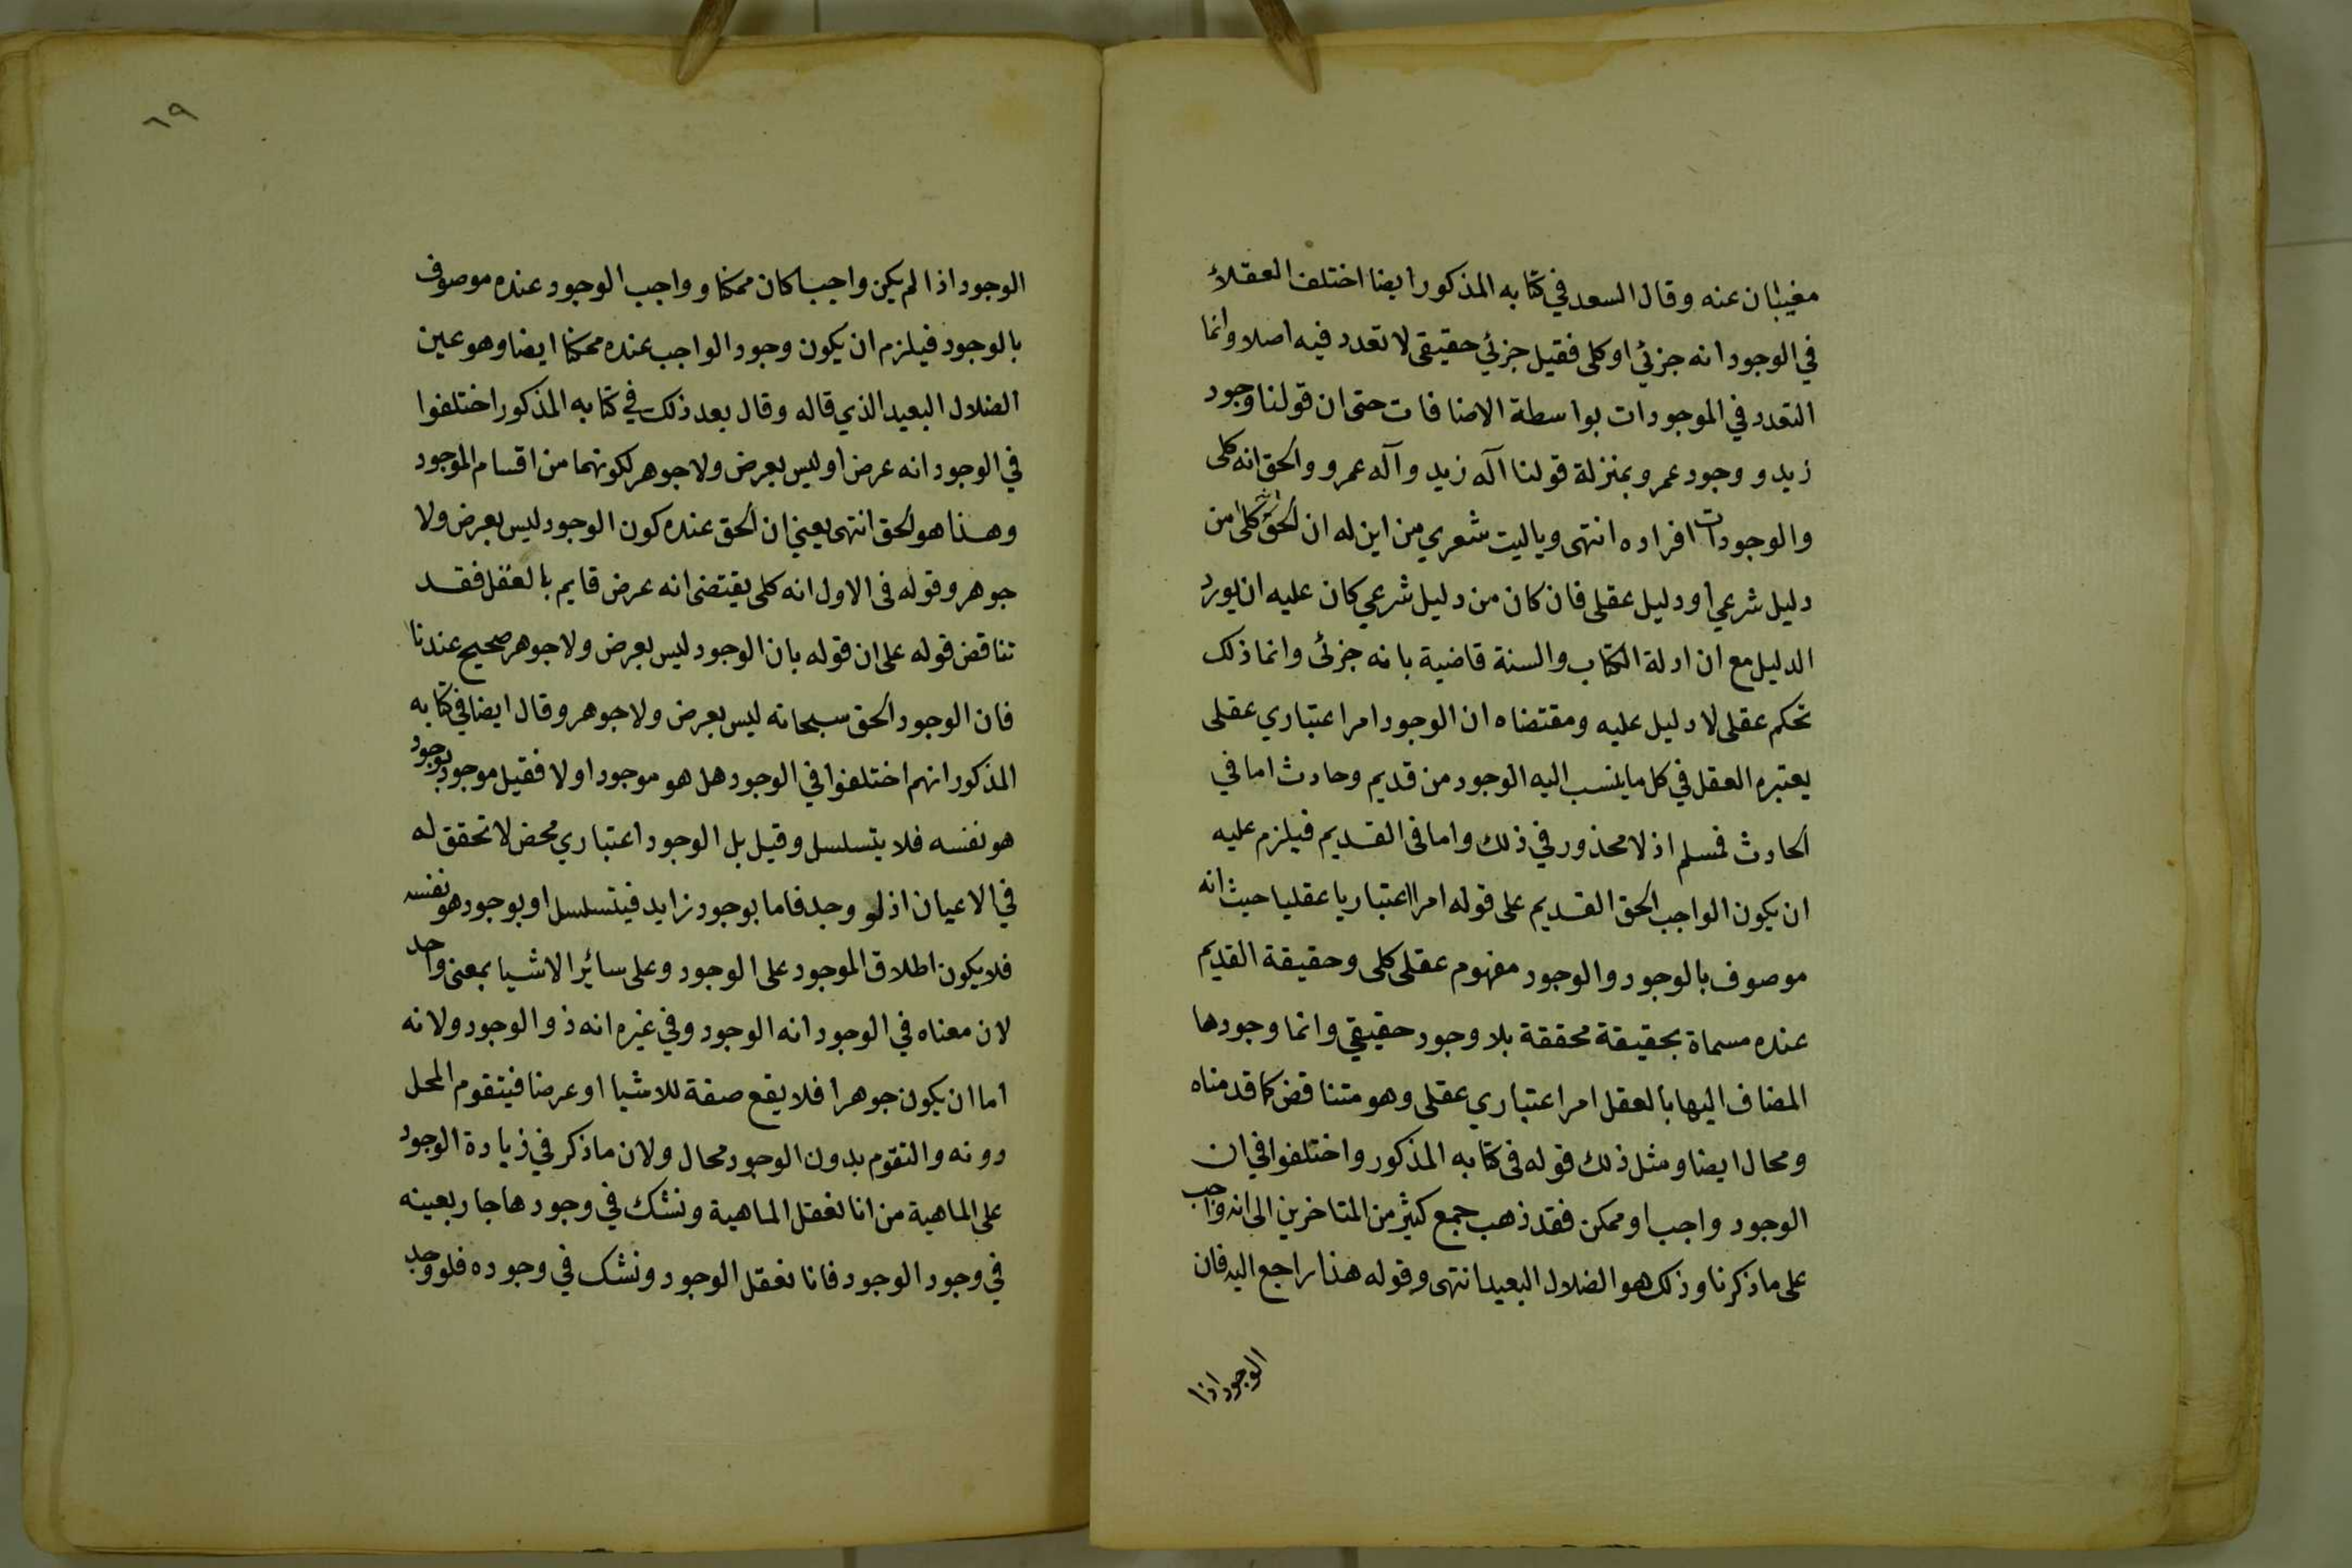 مغيبان عنه وقال السعد في كتابه المذكور ايضا اختلف العقلاء
في الوجود انه جزئي او كلى فقيل جزئي حقيقى لا تعدد فيه اصلا وانما
التعدد في الموجودات بواسطة الاضافات حتى ان قولنا وجود
زيد ووجود عمرو بمنزلة قولنا اله زيد واله عمرو والحق انه كلى
والوجودات افراده انتهى وياليت شعري من اين له ان الحق انه كلى من
دليل شرعي او دليل عقلى فان كان من دليل شرعي كان عليه ان يورد
الدليل مع ان ادلة الكتاب والسنة قاضية بانه جزئى وانما ذلك
تحكم عقلى لا دليل عليه ومقتضاه ان الوجود امر اعتباري عقلى
يعتبره العقل في كل ما ينسب اليه الوجود من قديم وحادث اما في
الحادث فمسلم اذ لا محذور في ذلك واما فى القديم فيلزم عليه
ان يكون الواجب الحق القديم على قوله امرا اعتباريا عقليا حيث انه
موصوف بالوجود والوجود مفهوم عقلى كلى وحقيقة القديم
عنده مسماة بحقيقة محققة بلا وجود حقيقي وانما وجودها
المضاف اليها بالعقل امر اعتباري عقلى وهو متناقض كما قدمناه
ومحال ايضا ومثل ذلك قوله فى كتابه المذكور واختلفوا في ان
الوجود واجب او ممكن فقد ذهب جمع كثير من المتاخرين الى انه واجب
على ما ذكرنا وذلك هو الضلال البعيد انتهى وقوله هذا راجع اليه فان
الوجود اذا
٦٩
الوجود اذا لم يكن واجبا كان ممكنا وواجب الوجود عنده موصوف
بالوجود فيلزم ان يكون وجود الواجب عنده ممكنا ايضا وهو عين
الضلال البعيد الذي قاله وقال بعد ذلك في كتابه المذكور اختلفوا
في الوجود انه عرض او ليس بعرض ولا جوهر لكونهما من اقسام الموجود
وهذا هو الحق انتهى يعني ان الحق عنده كون الوجود ليس بعرض ولا
جوهر وقوله فى الاول انه كلى يقتضى انه عرض قايم بالعقل فقد
تناقض قوله على ان قوله بان الوجود ليس بعرض ولا جوهر صحيح عندنا
فان الوجود الحق سبحانه ليس بعرض ولا جوهر وقال ايضا في كتابه
المذكور انهم اختلفوا في الوجود هل هو موجود اولا فقيل موجود بوجود
هو نفسه فلا يتسلسل وقيل بل الوجود اعتباري محض لا تحقق له
في الاعيان اذ لو وجد فاما بوجود زايد فيتسلسل او بوجود هو نفسه
فلا يكون اطلاق الموجود على الوجود وعلى سائر الاشيا بمعنى واحد
لان معناه في الوجود انه الوجود وفي غيره انه ذو الوجود ولانه
اما ان يكون جوهرا فلا يقع صفة للاشيا او عرضا فيتقوم المحل
دونه والتقوم بدون الوجود محال ولان ما ذكر في زيادة الوجود
على الماهية من انا نعقل الماهية ونشك في وجودها جار بعينه
في وجود الوجود فانا نعقل الوجود ونشك في وجوده فلو وجد